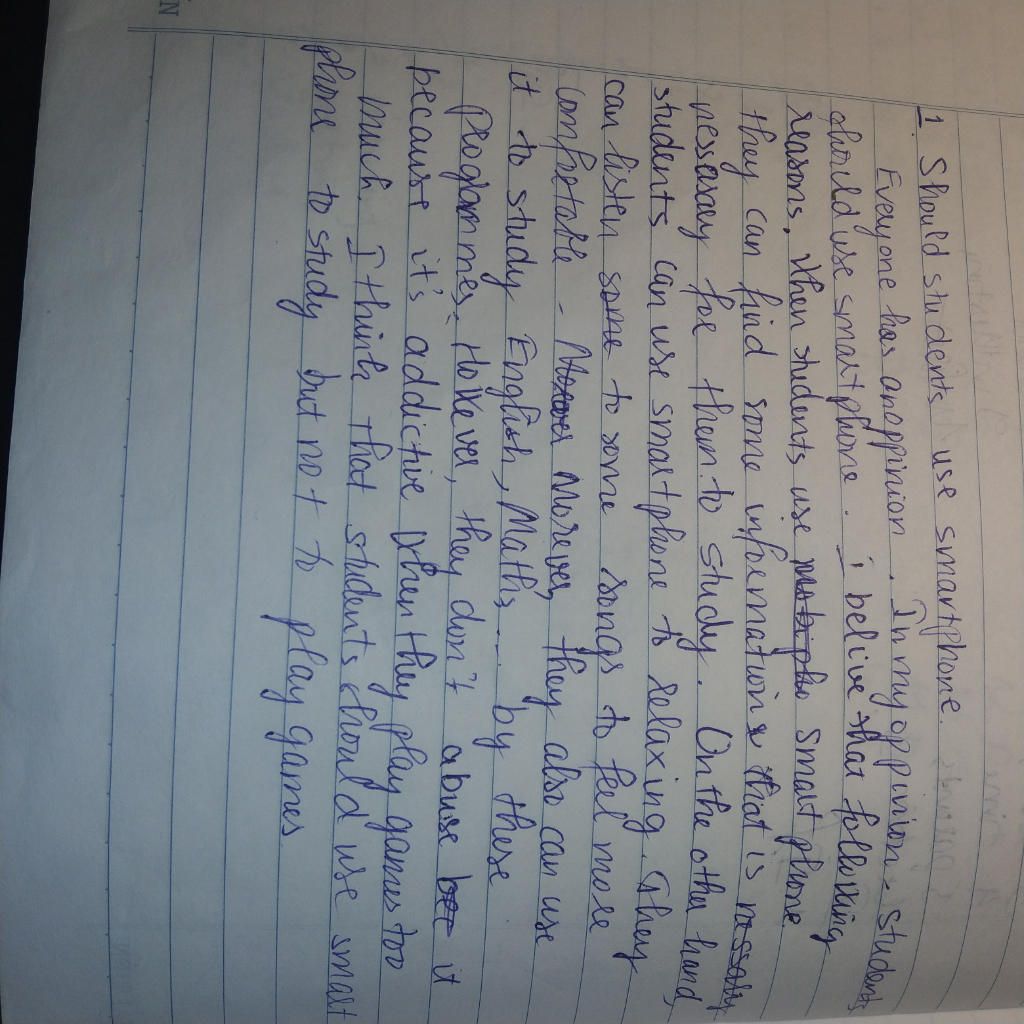 1. Should students use smartphone.
Everyone has anoppinion. In my oppinion, students
should use smartphone. i belive that following
reasons. When students use smart phone
they can find some information that is nessasly
nessesary for them to study. On the other hand,
students can use smartphone to relaxing. They
can listen some to some songs to feel more
comfortable - Morever, they also can use
it to study English, Maths... by these
programmes. However, they don't abuse it
because it's addictive when they play games too
much. I think that students should use smart
phone to study but not to play games.
N